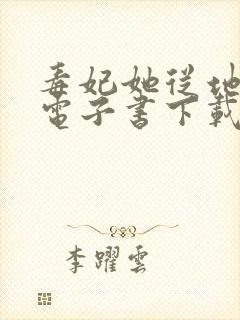 毒妃她從地
電子書下載
李躍雲